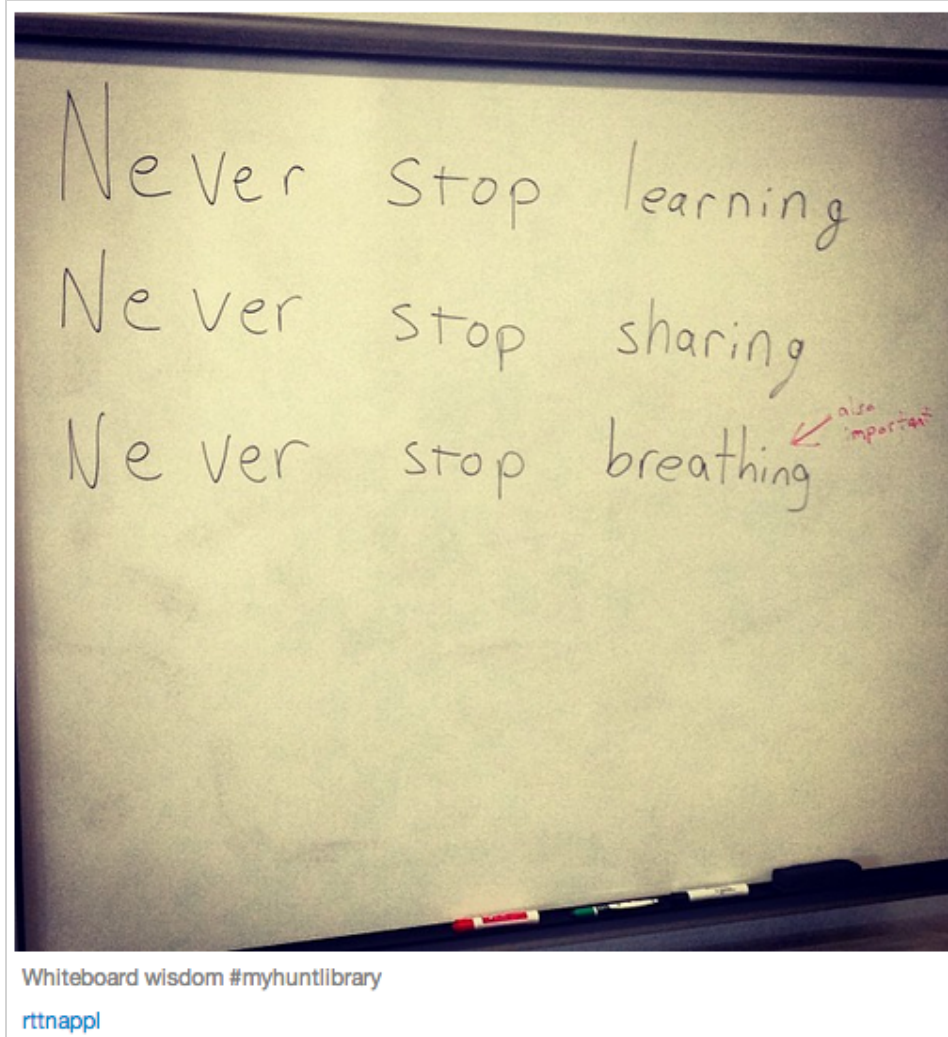 Never stop learning
Never stop sharing
Never stop breathing
also
important
Whiteboard wisdom #myhuntlibrary
rttnappl